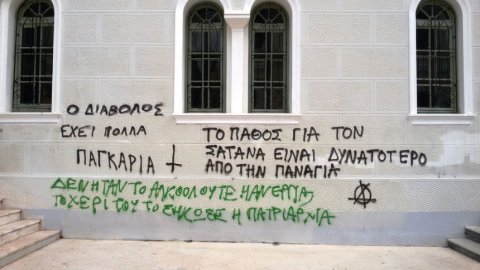 Ο ΔΙΑΒΟΛΟΣ
ΕΧΕΙ ΠΟΛΛΑ
ΠΑΓΚΑΡΙΑ
ΤΟ ΠΑΘΟΣ ΓΙΑ ΤΟΝ
ΣΑΤΑΝΑ ΕΙΝΑΙ ΔΥΝΑΤΟΤΕΡΟ
ΑΠΟ ΤΗΝ ΠΑΝΑΓΙΑ
ΔΕΝ ΗΤΑΝ ΤΟ ΑΛΚΟΟΛ ΟΥΤΕ Η ΑΝΕΡΓΙΑ,
ΤΟ ΧΕΡΙ ΤΟΥ ΤΟ ΣΗΚΩΣΕ Η ΠΑΤΡΙΑΡΧΙΑ